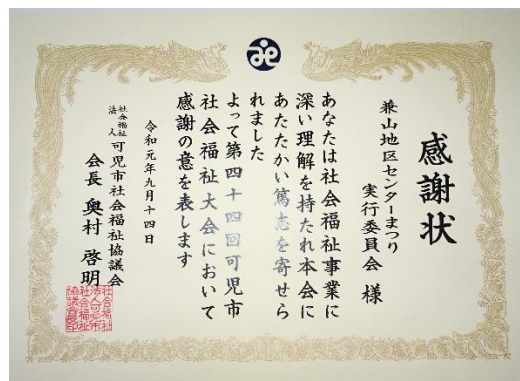 感謝状
兼山地区センターまつり
実行委員会 様
あなたは社会福祉事業に
深い理解を持たれ本会に
あたたかい篤志を寄せら
れました
よって第四十四回可児市
社会福祉大会において
感謝の意を表します
令和元年九月十四日
社会福祉
法人
可児市社会福祉協議会
会長 奥村 啓明
社会福祉
法人可児市
社会福祉
協議会会長印